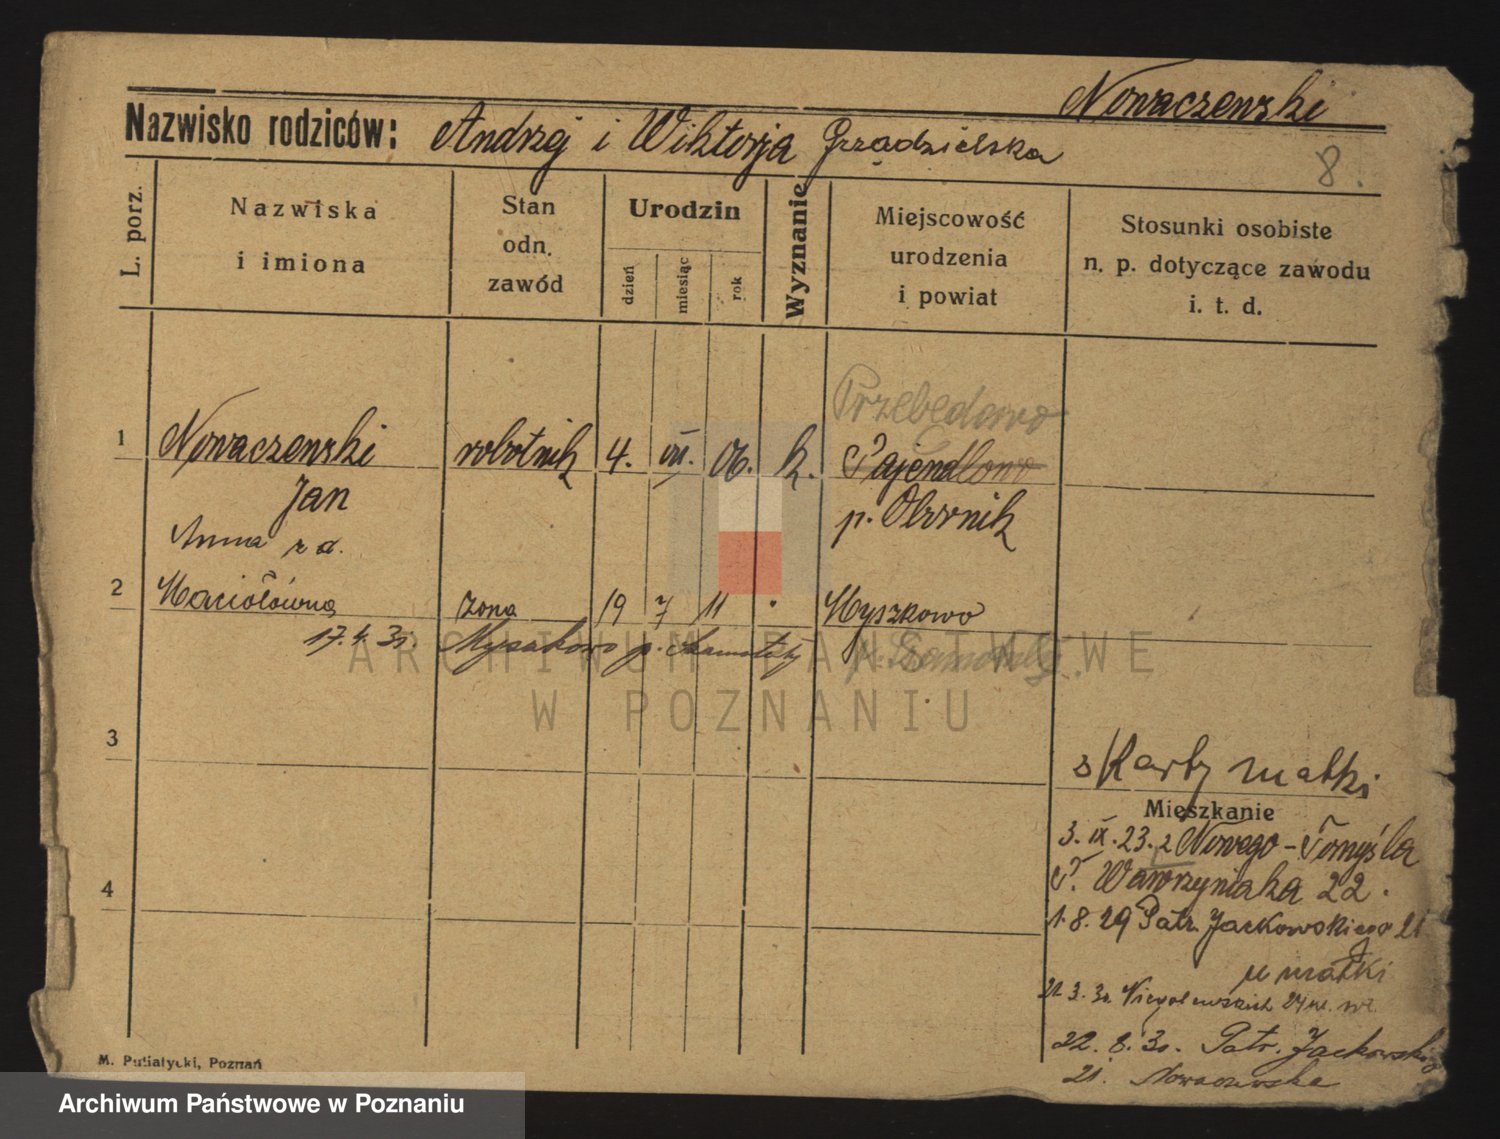 Nowaczewski
Nazwisko rodziców: Andrzej i Wiktorja Grządzielska
8.
L. porz.
Nazwiska
i imiona
Stan
odn.
zawód
Urodzin
dzień
miesiąc
rok
Wyznanie
Miejscowość
urodzenia
i powiat
Stosunki osobiste
n. p. dotyczące zawodu
i. t. d.
Przebędowo
1 Nowaczewski robotnik 4. VII. 06. k. Pajendlowo
Jan p. Obornik
Anna z d.
2 Maciołówna żona 19 7 11 Myszkowo
17.4.31. Myszkowo p. Szamotuły
p. Szamotuły
3
z Karty matki
Mieszkanie
3. IX. 23. z Nowego-Tomyśla
P. Wawrzyniaka 22.
4
1.8.29 Patr. Jackowskiego 21
u matki
21.3.31 Niegolewskich 24
22.8.31. Patr. Jackowskiego
21. Nowaczewska
M. Putiatycki, Poznań
ARCHIWUM PAŃSTWOWE
W POZNANIU
Archiwum Państwowe w Poznaniu